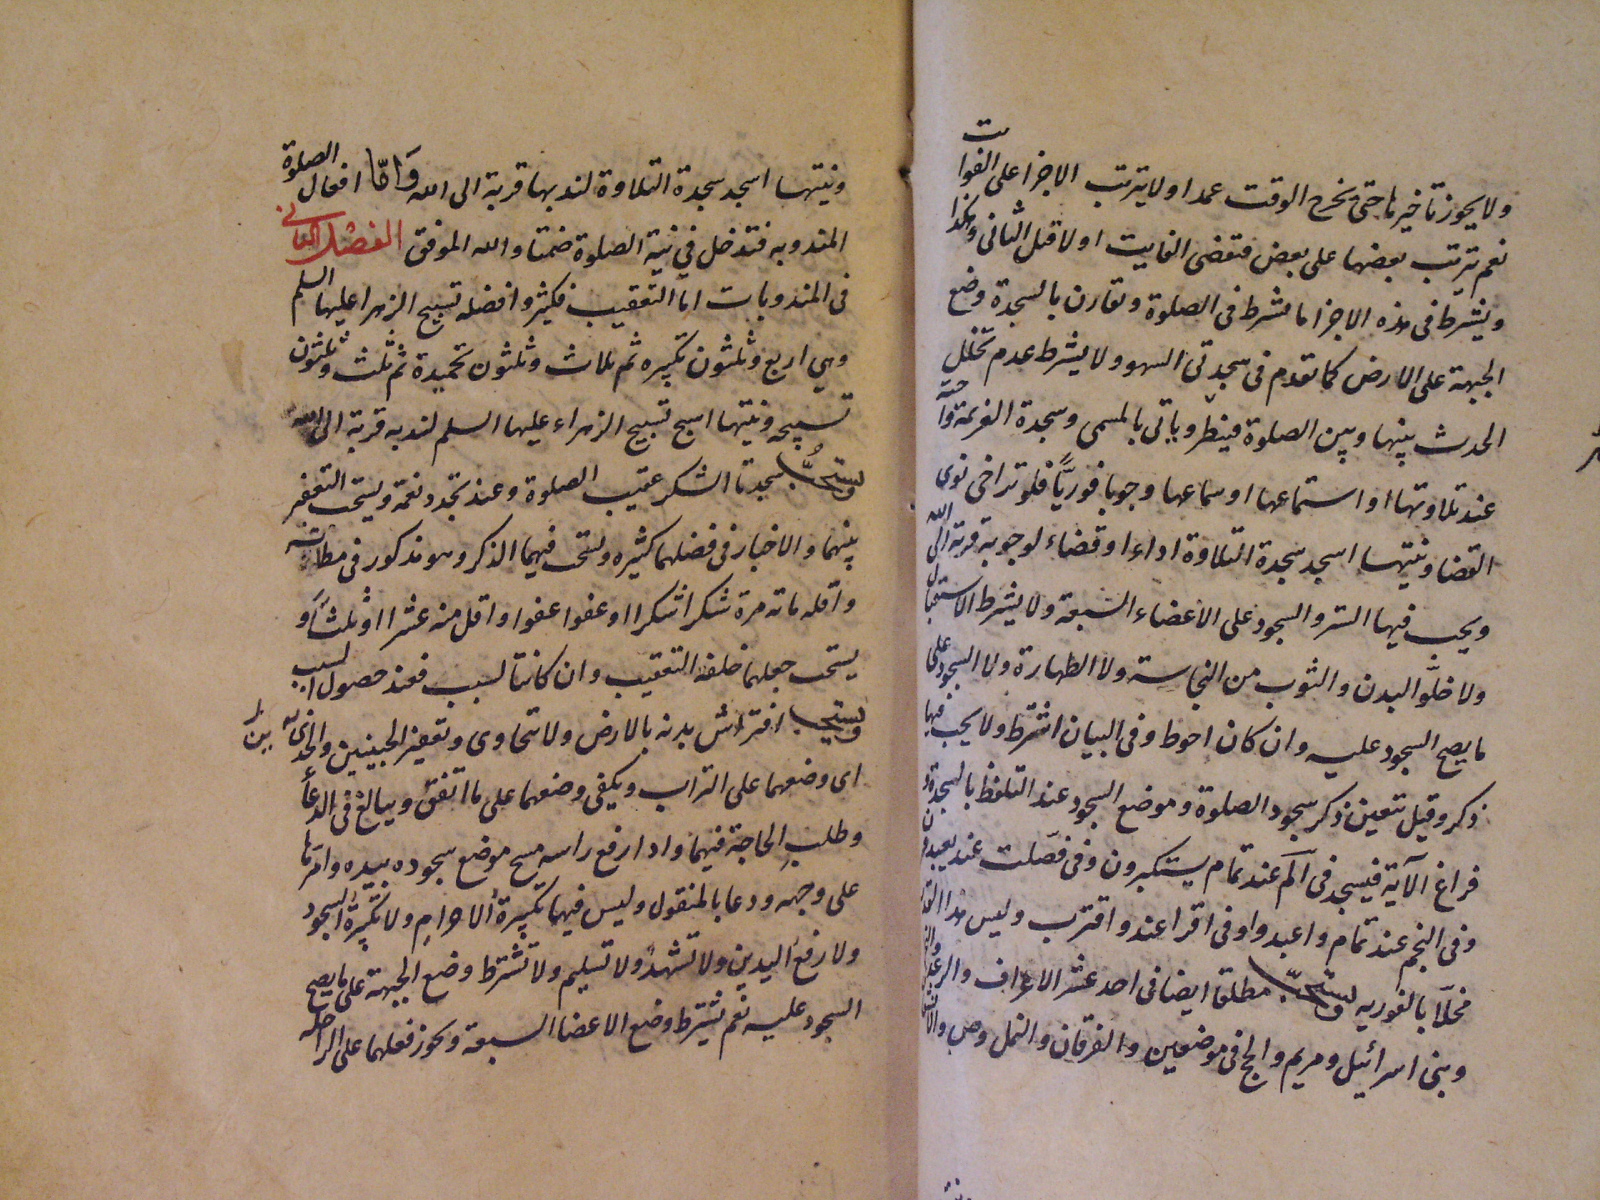 ولا يجوز تاخيرها حتى يخرج الوقت عمدا ولا يترتب الاجزا على الفوائت
نعم يترتب بعضها على بعض فتقضى الفايت اولا قبل الثانى وهكذا
ويشترط فى هذه الاجزا ما يشترط فى الصلوة وتقارن بالسجدة وضع
الجبهة على الارض كما تقدم فى سجدتى السهو ولا يشترط عدم تخلل
الحدث بينها وبين الصلوة فينطر وياتى بالمسمى وسجدة العزيمة واجبة
عند تلاوتها او استماعها او سماعها وجوبا فوريًّا فلو تراخى نوى
القضا ونيتها اسجد سجدة التلاوة اداء او قضاء لوجوبه قربة الى الله
ويجب فيها الستر والسجود على الاعضاء السبعة ولا يشترط الاستقبال
ولا خلّو البدن والثوب من النجاسة ولا الطهارة ولا السجود على
ما يصح السجود عليه وان كان احوط وفى البيان اشترط ولا يجب فيها
ذكر وقيل يتعين ذكر سجود الصلوة وموضع السجود عند التلفظ بالسجدة
فراغ الآية فيسجد فى الم عند تمام يستكبرون وفى فصلت عند يعبدون
وفى النجم عند تمام واعبدوا وفى اقرا عند واقترب وليس هذا القدر
مخلّا بالفوريه ويستحبّ مطلقا ايضا فى احد عشر الاعراف والرعد والنحل
وبنى اسرائيل ومريم والحج فى موضعين والفرقان والنمل وص والانشقاق
ونيتها اسجد سجدة التلاوة لندبها قربة الى الله وَامّا افعال الصلوة
المندوبه فتدخل فى نية الصلوة ضمنا والله الموفق الفصل الثانى
فى المندوبات اما التعقيب فكثير وافضله تسبيح الزهرا عليها السلم
وهي اربع وثلثون تكبيره ثم ثلاث وثلثون تحميدة ثم ثلث وثلثون
تسبيحه ونيتها اسبح تسبيح الزهراء عليها السلم لندبه قربة الى الله
ويستحبُّ سجدتا الشكر عقيب الصلوة وعند تجدد نعمة ويستحب التعفير
بينهما والاخبار فى فضلهما كثيره ويستحب فيهما الذكر وهو مذكور فى مظانه
واقله مائه مرة شكرا شكرا او عفوا عفوا واقل منه عشرا او ثلثا و
يستحب جعلهما خلف التعقيب وان كانتا لسبب فعند حصول السبب
ويستحبا افتراش بدنه بالارض ولا يتجاوى وتعفير الجبينين والخدين
اى وضعهما على التراب ويكفى وضعهما على ما اتفق ويبالغ فى الدعأ
وطلب الحاجة فيهما واذا رفع راسه مسح موضع سجوده بيده وامرّها
على وجهه ودعا بالمنقول وليس فيهما تكبيرة الاحرام ولا تكبيرة السجود
ولا رفع اليدين ولا تشهد ولا تسليم ولا تشترط وضع الجبهة على ما يصح
السجود عليه نعم تشترط وضع الاعضا السبعة ويجوز فعلهما على الراحلة